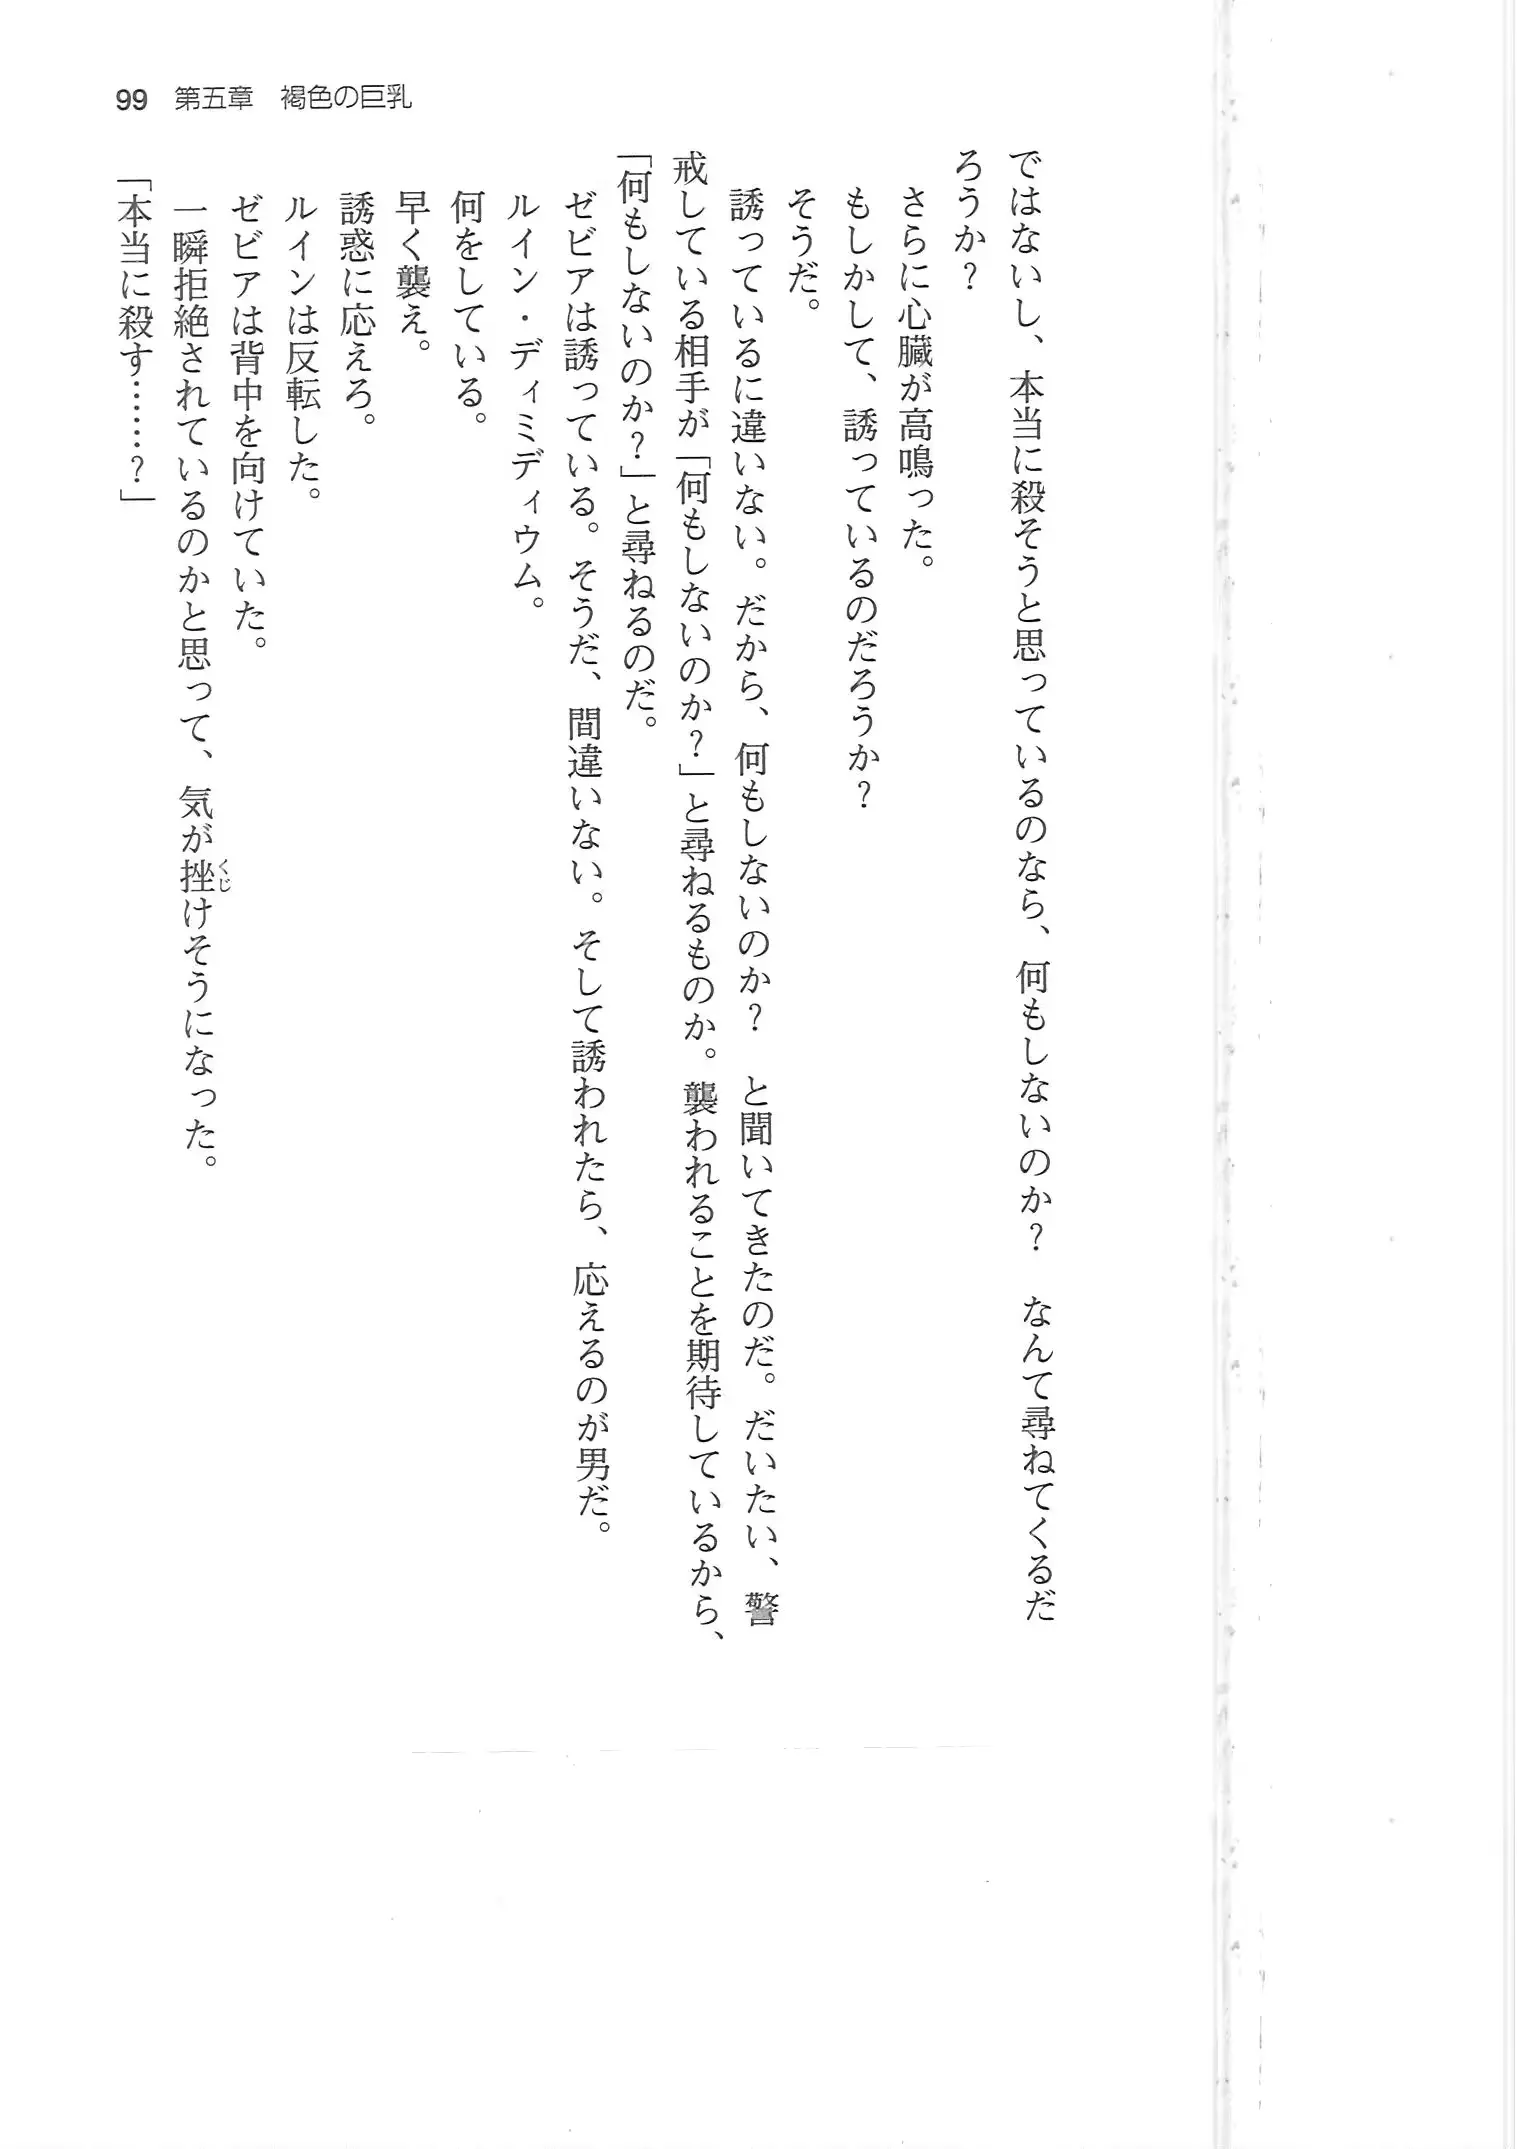 99 第五章 褐色の巨乳
ではないし、本当に殺そうと思っているのなら、何もしないのか？ なんて尋ねてくるだ
ろうか？
さらに心臓が高鳴った。
もしかして、誘っているのだろうか？
そうだ。
誘っているに違いない。だから、何もしないのか？ と聞いてきたのだ。だいたい、警
戒している相手が「何もしないのか？」と尋ねるものか。襲われることを期待しているから、
「何もしないのか？」と尋ねるのだ。
ゼビアは誘っている。そうだ、間違いない。そして誘われたら、応えるのが男だ。
ルイン・ディミディウム。
何をしている。
早く襲え。
誘惑に応えろ。
ルインは反転した。
ゼビアは背中を向けていた。
一瞬拒絶されているのかと思って、気が挫けそうになった。
くじ
「本当に殺す……？」